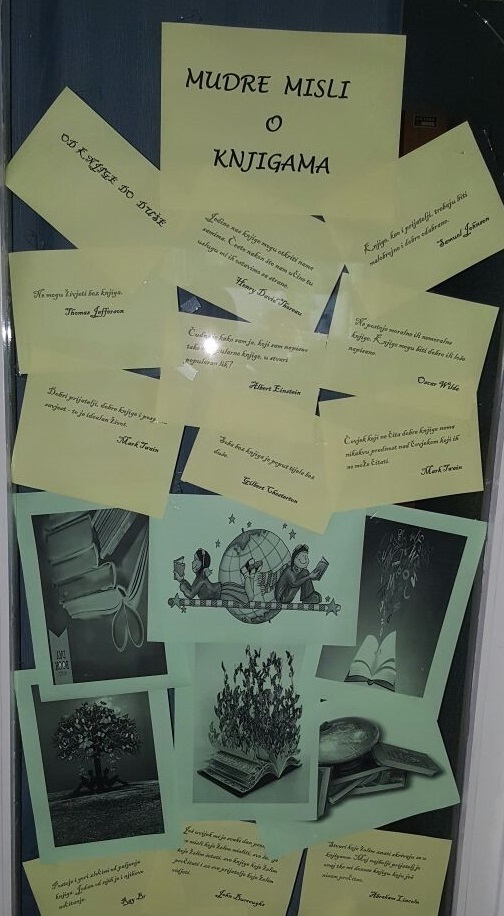 MUDRE MISLI
O
KNJIGAMA
OD KNJIGE DO DUŠE
Jedino nas knjige mogu otkriti nama
samima. Čete nakon što nam učine tu
uslugu mi ih ostavimo sa strane.
Henry David Thoreau
Knjige, kao i prijatelji, trebaju biti
malobrojne i dobro odabrane.
Samuel Johnson
Ne mogu živjeti bez knjiga.
Thomas Jefferson
Čudno je kako sam ja, koji sam napisao
tako popularne knjige, u stvari
popularan lik?
Albert Einstein
Ne postoje moralne ili nemoralne
knjige. Knjige mogu biti dobro ili loše
napisane.
Oscar Wilde
Dobri prijatelji, dobre knjige i
savjest - to je idealan život.
Mark Twain
Soba bez knjiga je poput tijela bez
duše.
Gilbert Chesterton
Čovjek koji ne čita dobre knjige nema
nikakvu prednost nad čovjekom koji ih
ne može čitati.
Mark Twain
Postoje i gori zločini od paljenja
knjiga. Jedan od njih je i njihovo
nečitanje.
Ray Br
John Burroughs
Stvari koje želim znati skrivaju se u
knjigama. Moj najbolji prijatelj je
onaj tko mi donese knjigu koju još
nisam pročitao.
Abraham Lincoln